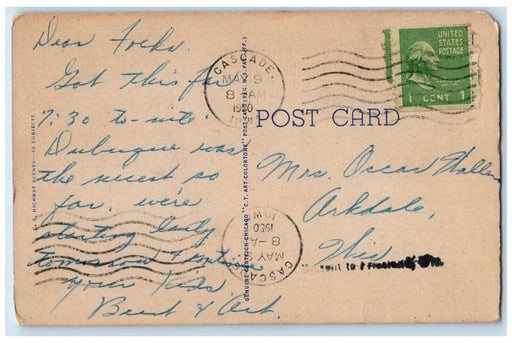 Dear Folks.
Got this far
7:30 to-nite
Dubuque was
the nicest so
far, we're
starting early
tomorrow
your kids
& Art.
CASCADE,
MAY 9
8 AM
1950
UNITED
STATES
POSTAGE
1 CENT 1
POST CARD
Mrs. Oscar
Arkdale,
Wis
CASCADE
MAY
8-A
1950
IOWA
HIGHWAY SCENES—10 SUBJECTS
GENUINE CURTEICH-CHICAGO "C.T. ART-COLORTONE" POST CARD (REG. U.S. PAT. OFF.)